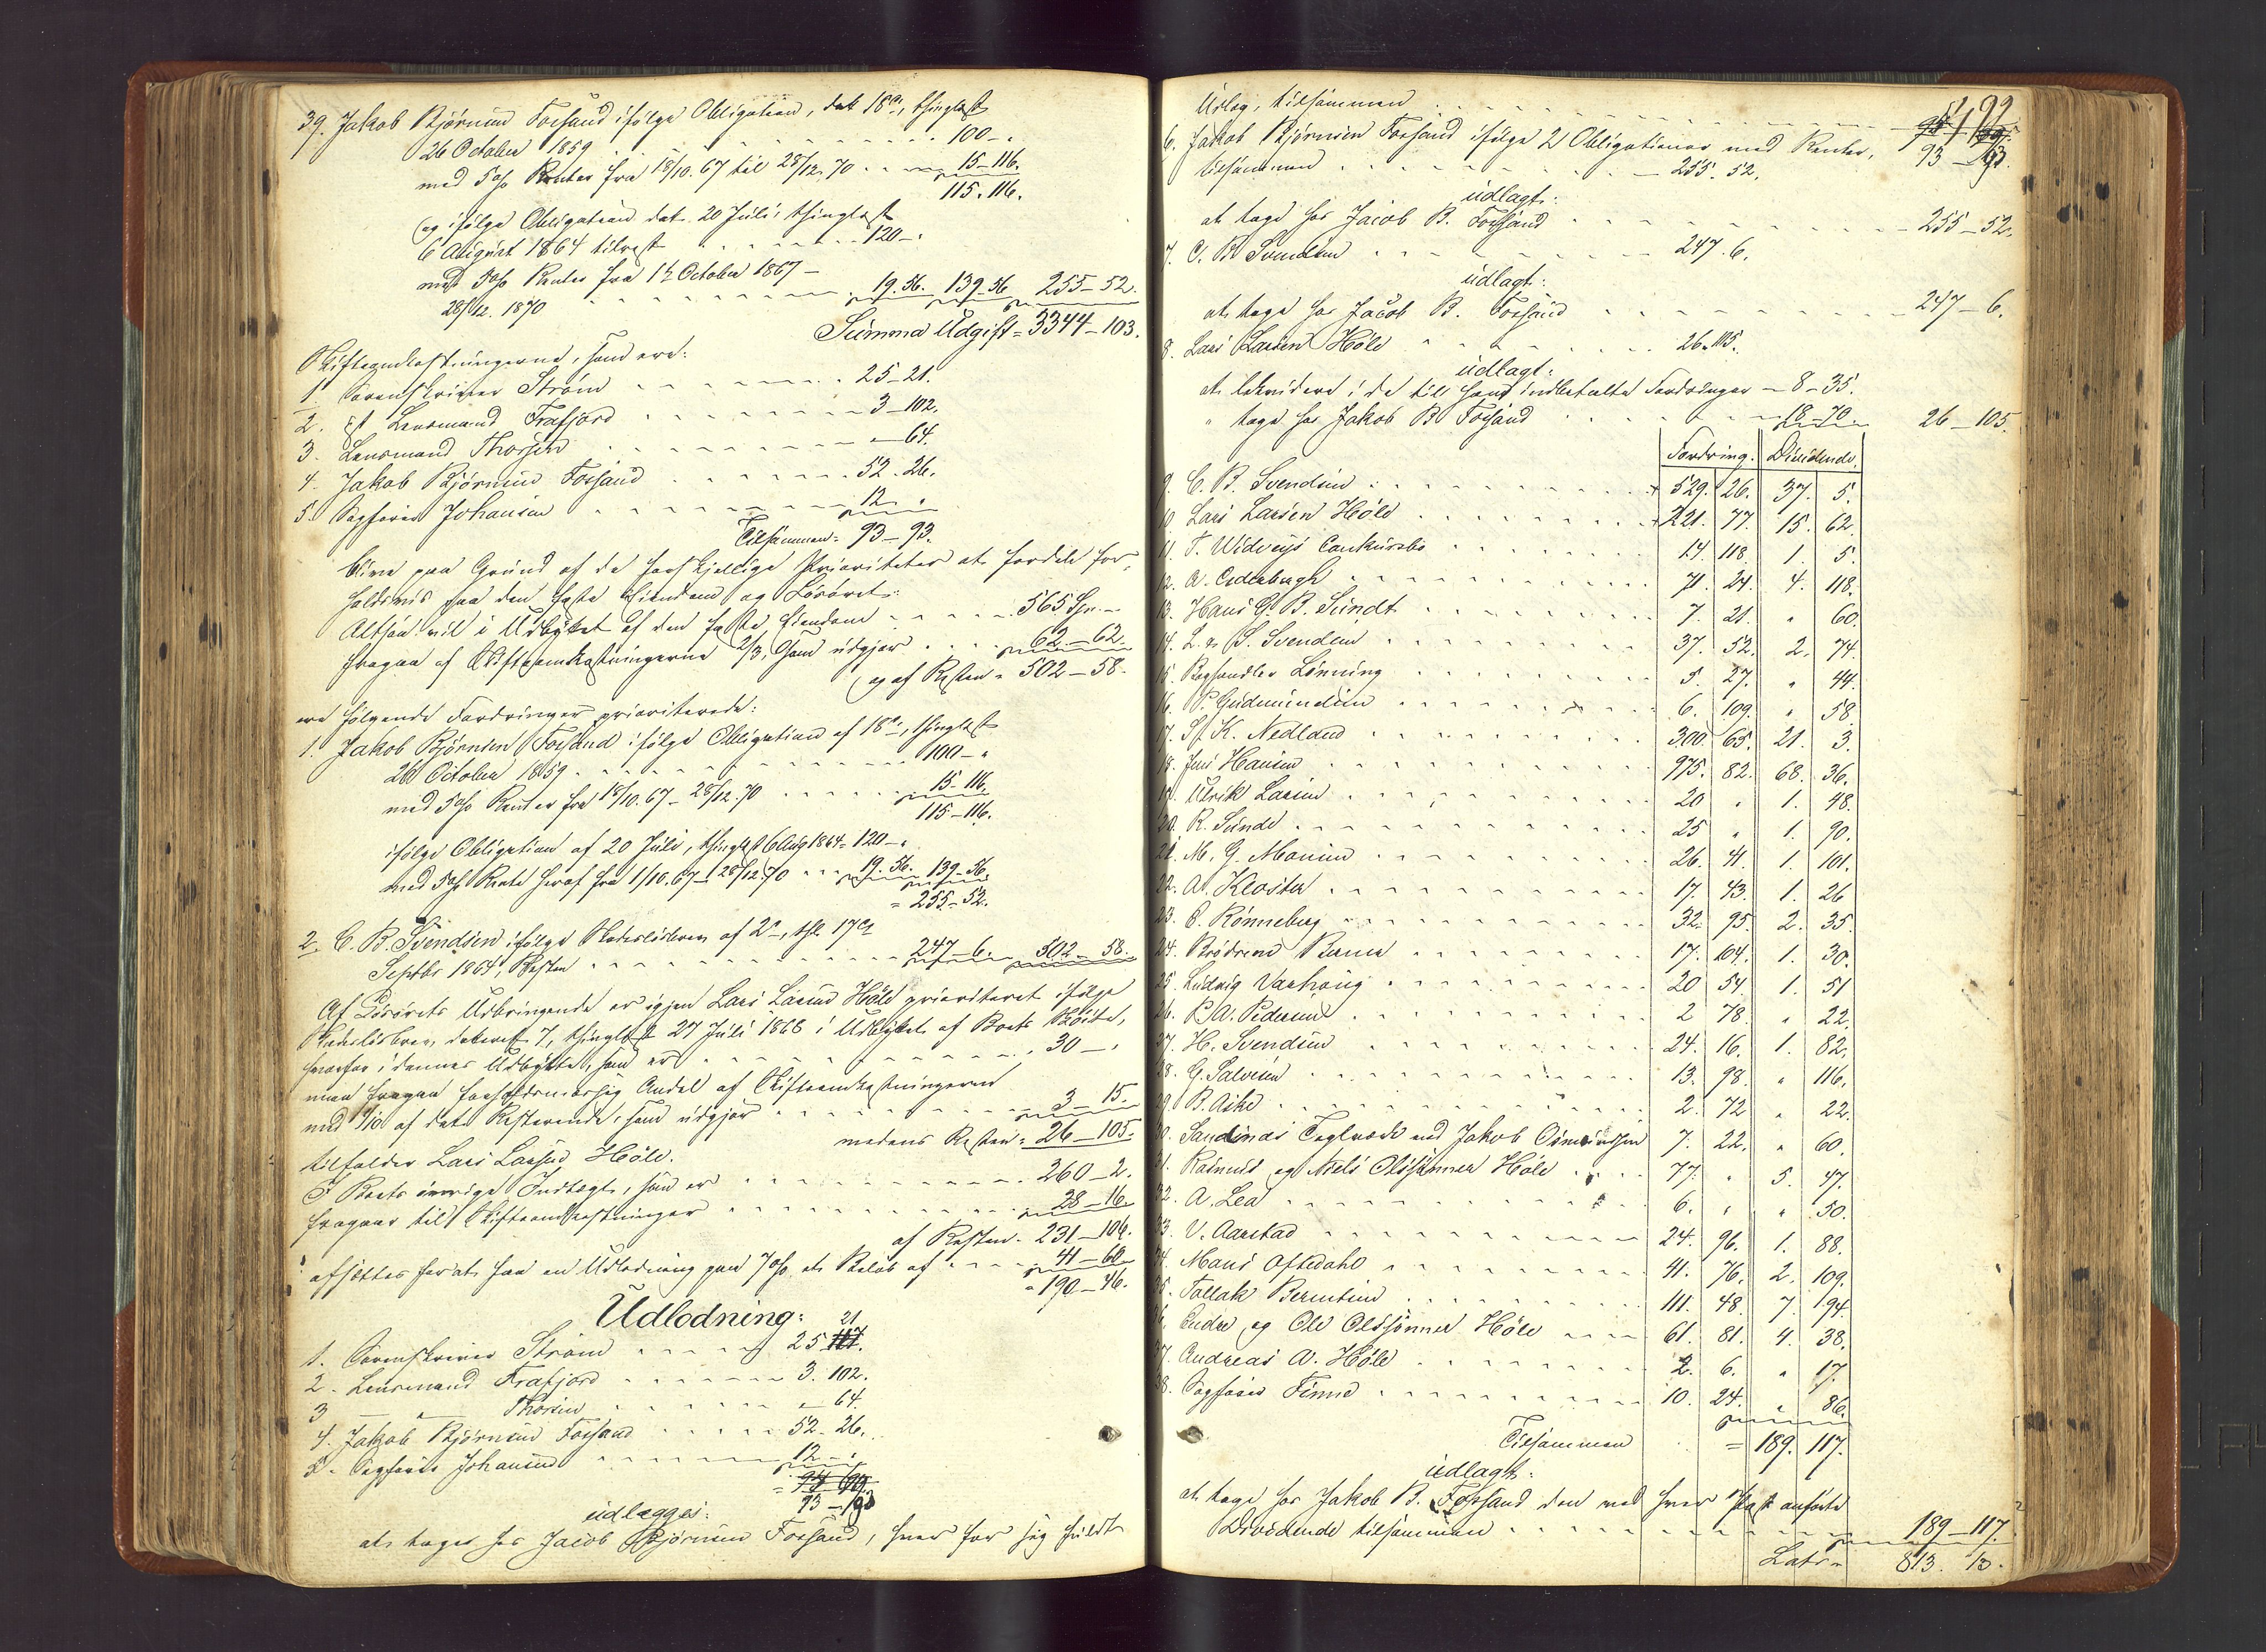 39. Jakob Bjørnsen Fossand ifølge Obligation, dat 18de, thinglæst
26 October 1859 . . . 100 - "
med 5 % Renter fra 18/10. 67 til 28/12. 70 . . . 15 - 116.
115. 116.
og ifølge Obligation dat. 20 Juli, thinglæst
6 August 1864 tilrest . . . 120 - "
med 5 % Renter fra 1ste October 1867 -
28/12. 1870 . . . 19. 56. 139 - 56 255 - 52.
Summa Udgift = 3344 - 103.
Skifteomkostningerne, som ere:
1. Sorenskriver Strøm . . . 25 - 21.
2. Lensmand Frafjord . . . 3 - 102.
3. Lensmand Thorsen . . . " - 64.
4. Jakob Bjørnsen Fossand . . . 52 - 26.
5. Sagfører Johansen . . . 12 - "
Tilsammen = 93 - 93.
blive paa Grund af de forskjellige Prioriteter at fordele for-
holdsvis paa den faste Eiendom og Løsøret.
Altsaa vil i Udbyttet af den faste Eiendom . . . 565 Spr. -
fragaa af Skifteomkostningerne 2/3, som udgjør . . . 62 - 62.
og af Resten = 502 - 58.
ere følgende Fordringer prioriterede:
1. Jakob Bjørnsen Fossand ifølge Obligation af 18de, thinglæst
26 October 1859 . . . 100 - "
med 5 % Renter fra 18/10. 67 - 28/12. 70 . . . 15 - 116.
115 - 116.
ifølge Obligation af 20 Juli, thinglæst 6 Aug 1864 = 120 - "
med 5 % Rente heraf fra 1/10. 67 - 28/12. 70 . . . 19. 56. 139 - 56.
= 255 - 52.
2. C. B. Svendsen ifølge Skadesløsbrev af 2den, thl. 17de
Septbr 1864, Resten . . . 247 - 6. 502 - 58.
Af Løsørets Udbringende er igjen Lars Larsen Høle prioriteret ifølge
Skadesløsbrev, dateret 7, thinglæst 27 Juli 1868 i Udbyttet af Boets
hvorfor i dennes Udbytte, som er . . . 30 - "
maa fragaa forholdsmæssig Andel af Skifteomkostningerne
med 1/10 af det Resterende, som udgjør . . . 3 - 15.
medens Resten = 26 - 105.
tilfalder Lars Larsen Høle.
I Boets øvrige Indtægt, som er . . . 260 - 2.
fragaar til Skifteomkostninger . . . 28 - 16.
af Resten = 231 - 106.
afsættes for at faa en Udlodning paa 7 % et Beløb af . . . 41 - 60
= 190 - 46.
Udlodning:
1. Sorenskriver Strøm . . . 25 21
2. Lensmand Frafjord . . . 3. 102.
3 — " — Thorsen . . . " 64.
4. Jakob Bjørnsen Fossand . . . 52 - 26.
5. Sagfører Johansen . . . 12 - "
93 - 93
udlægges:
at tages hos Jacob Bjørnsen Fossand, hver for sig fuldt
199
Udlæg, tilsammen . . . 93 - 93.
6. Jakob Bjørnsen Fossand ifølge 2 Obligationer med Renter,
tilsammen . . . 255. 52.
udlagt:
at tage hos Jacob B. Fossand . . . 255 - 52.
7. C. B. Svendsen . . . 247. 6.
udlagt:
at tage hos Jacob B. Fossand . . . 247 - 6.
8. Lars Larsen Høle . . . 26. 105.
udlagt:
at likvidere i de til ham indbetalte Fordringer - 8 - 35.
" tage hos Jakob B. Fossand . . . 18 - 70. 26 - 105.
Fordring. Dividende.
9. C. B. Svendsen . . . 529. 26. 37. 5.
10 Lars Larsen Høle . . . 221. 77. 15. 62
11. T. Widveys Conkursbo . . . 14. 118 1. 5.
12. A. Cederbergh . . . 71. 24. 4. 118.
13. Hans G. B. Sundt . . . 7. 21. " 60.
14. L. & S. Svendsen . . . 37. 52. 2. 74.
15. Boghandler Lønning . . . 5. 27. " 44.
16. P. Gudmundsen . . . 6. 109. " 58
17. S. K. Nedland . . . 300. 65. 21. 3.
18. Jens Hansen . . . 975. 82. 68. 36.
19. Ulrik Larsen . . . 20 " 1. 48.
20. R. Sunde . . . 25 " 1. 90.
21. M. G. Monsen . . . 26. 41. 1. 101.
22. A. Kloster . . . 17. 43. 1. 26
23. C. Rønneberg . . . 32. 95. 2. 35.
24. Brødrene Berner . . . 17. 104. 1. 30.
25. Ludvig Varhoug . . . 20 54. 1. 51
26. P. A. Pedersen . . . 2 78. " 22.
27. H. Svendsen . . . 24. 16. 1. 82.
28. G. Salvesen . . . 13. 98. " 116.
29. B. Aske . . . 2. 72 " 22.
30. Sandnæs Teglværk ved Jakob Osmundsen 7. 22. " 60.
31. Rasmus og Niels Olssønner Høle . . . 77. " 5. 47.
32. A. Lea . . . 6. " " 50.
33. V. Aarstad . . . 24. 96. 1. 88.
34. Mons Oftedahl . . . 41. 76. 2. 109.
35. Tollak Berntsen . . . 111. 48. 7. 94.
36. Endre og Ole Olssønner Høle . . . 61. 81. 4. 38.
37. Andreas A. Høle . . . 2. 6. " 17.
38. Sagfører Finne . . . 10. 24. " 86.
Tilsammen = 189. 117.
udlagt:
at tage hos Jakob B. Fossand den ved hver Post anførte
Dividende tilsammen . . . 189 - 117.
Lats = 813. 13.